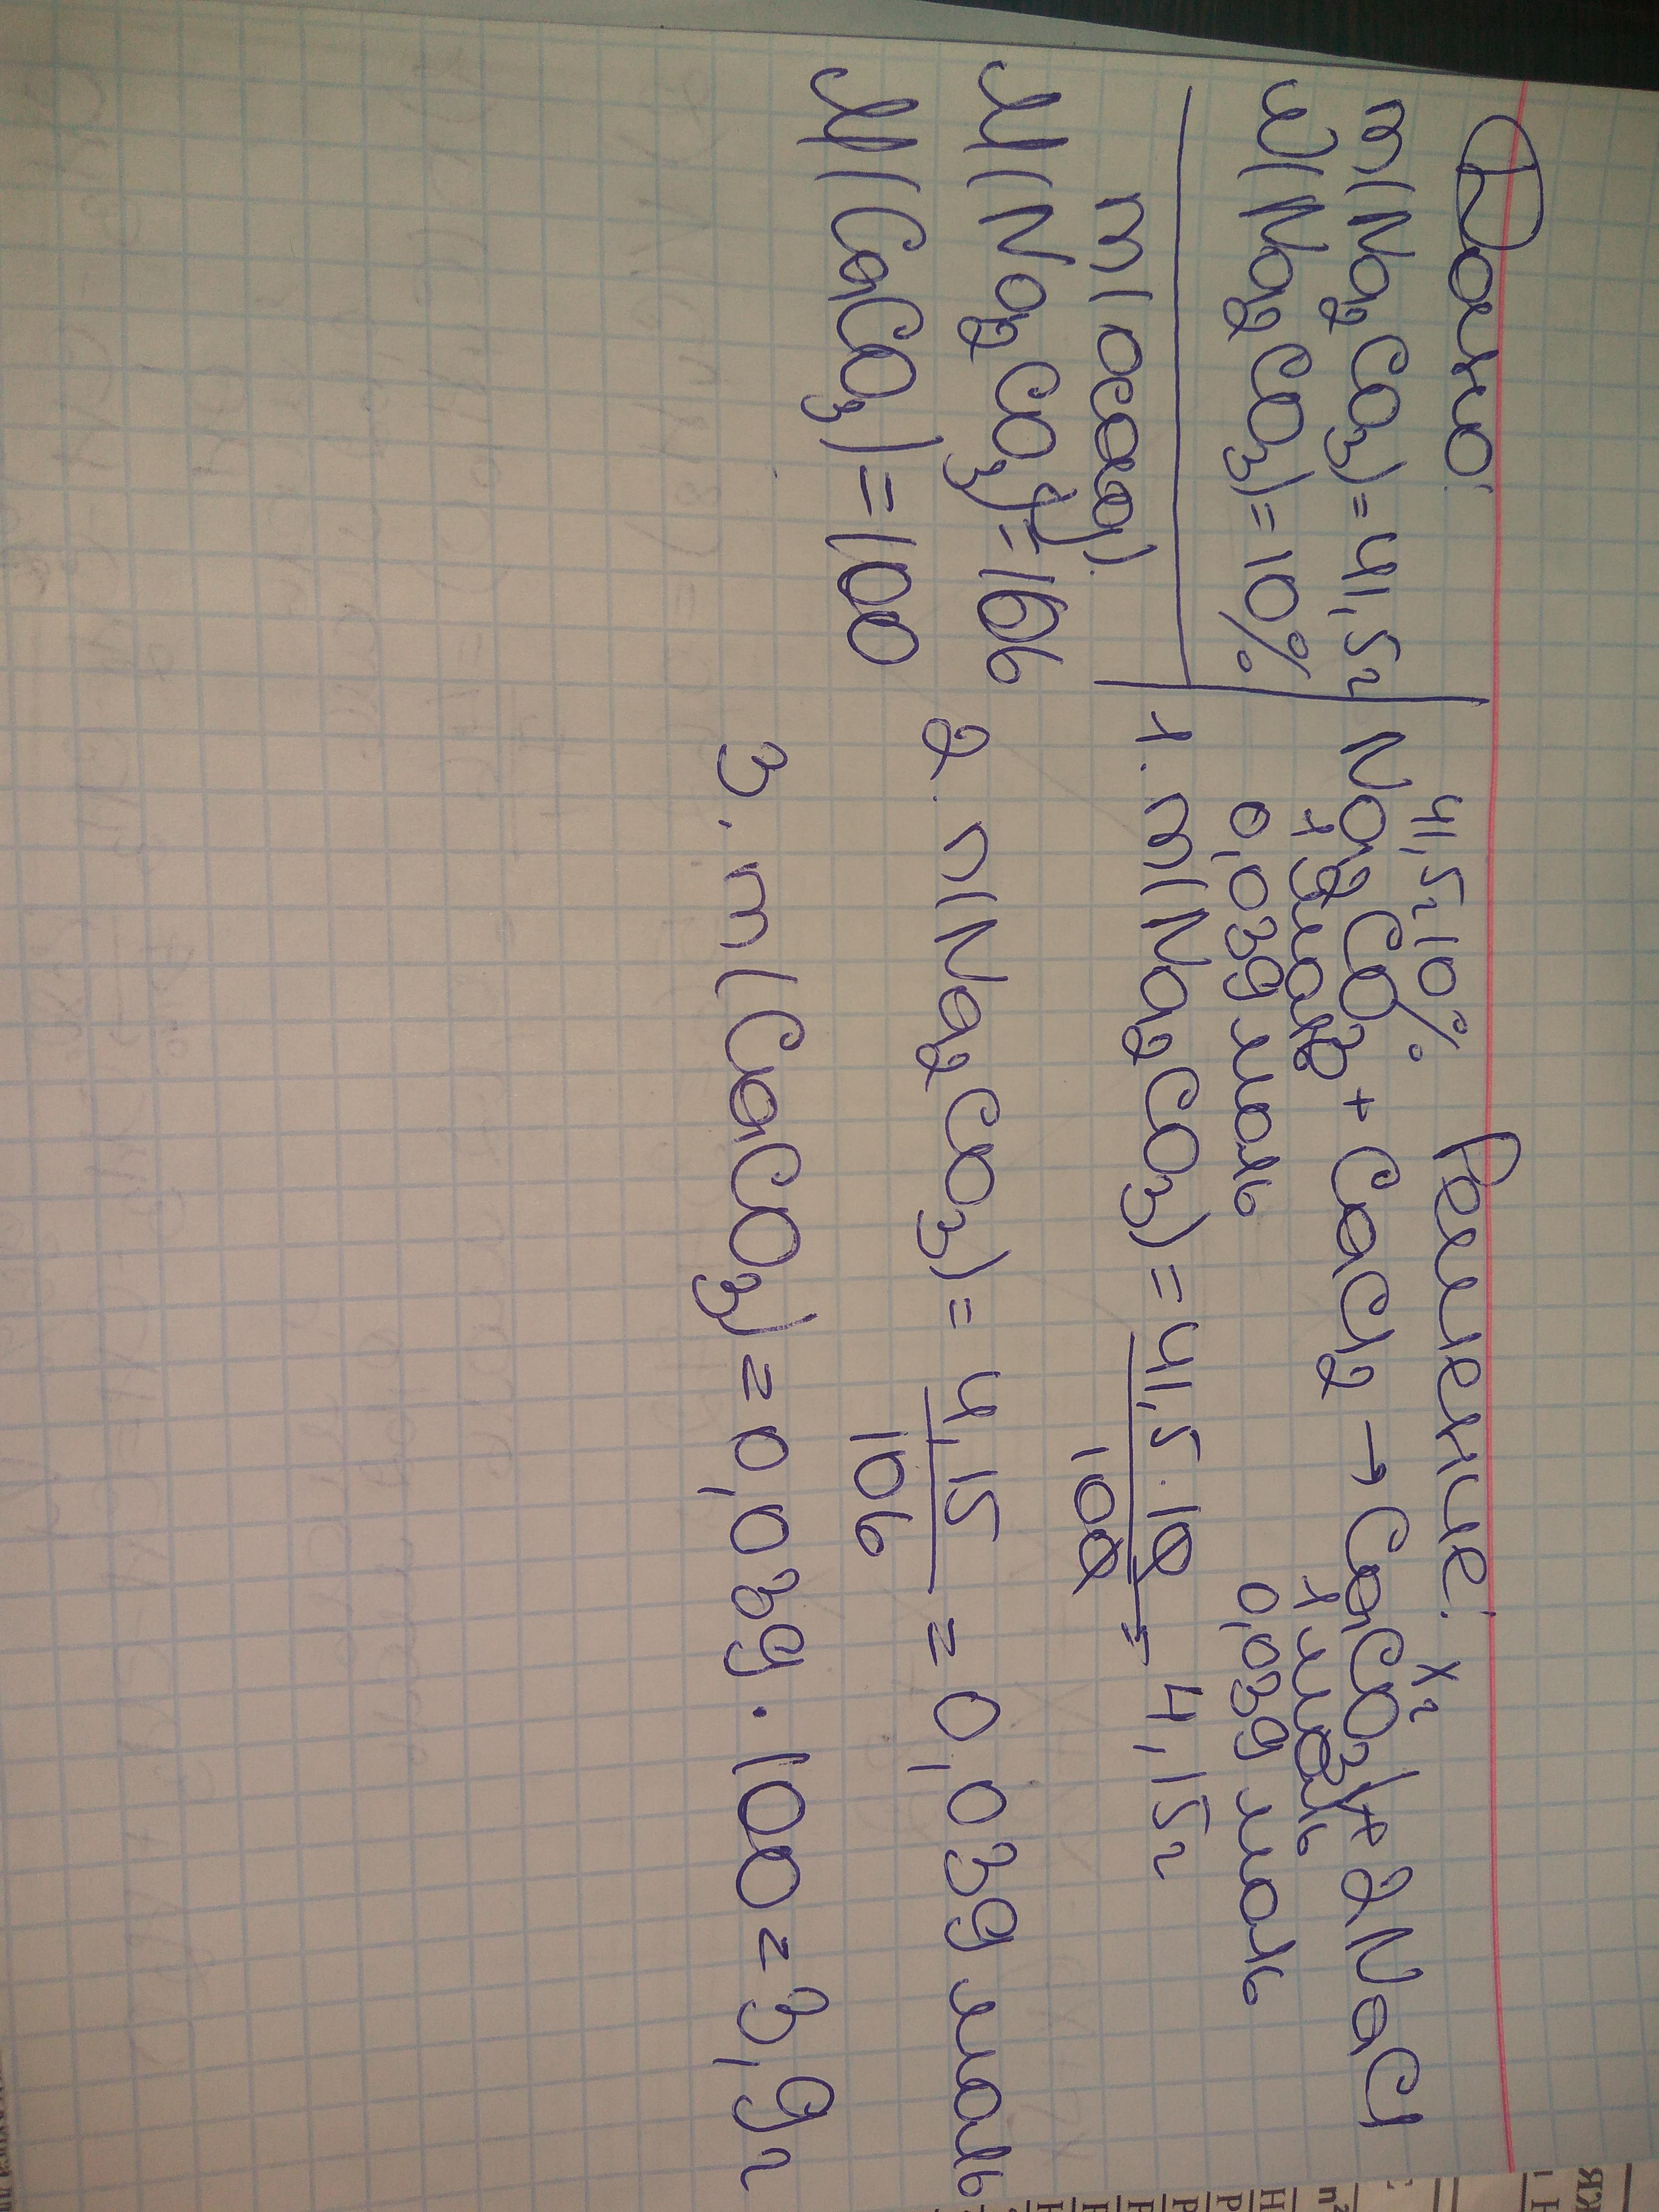 Дано:
m(Na2CO3)=41,5г
ω(Na2CO3)=10%
m(осад).
M(Na2CO3)=106
M(CaCO3)=100
Решение:
41,5г 10% xг
Na2CO3 + CaCl2 → CaCO3↓ + 2NaCl
1 моль 1 моль
0,039 моль 0,039 моль
1. m(Na2CO3) = 41,5·10/100 = 4,15г
2. n(Na2CO3) = 4,15/106 = 0,039 моль
3. m(CaCO3) = 0,039·100 = 3,9г